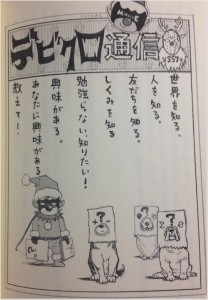 デビクロ通信
357
世界を知る。
人を知る。
友だちを知る。
しくみを知る
勉強じゃない、知りたい!
興味がある。
あなたに興味がある
教えて!
?
?
?